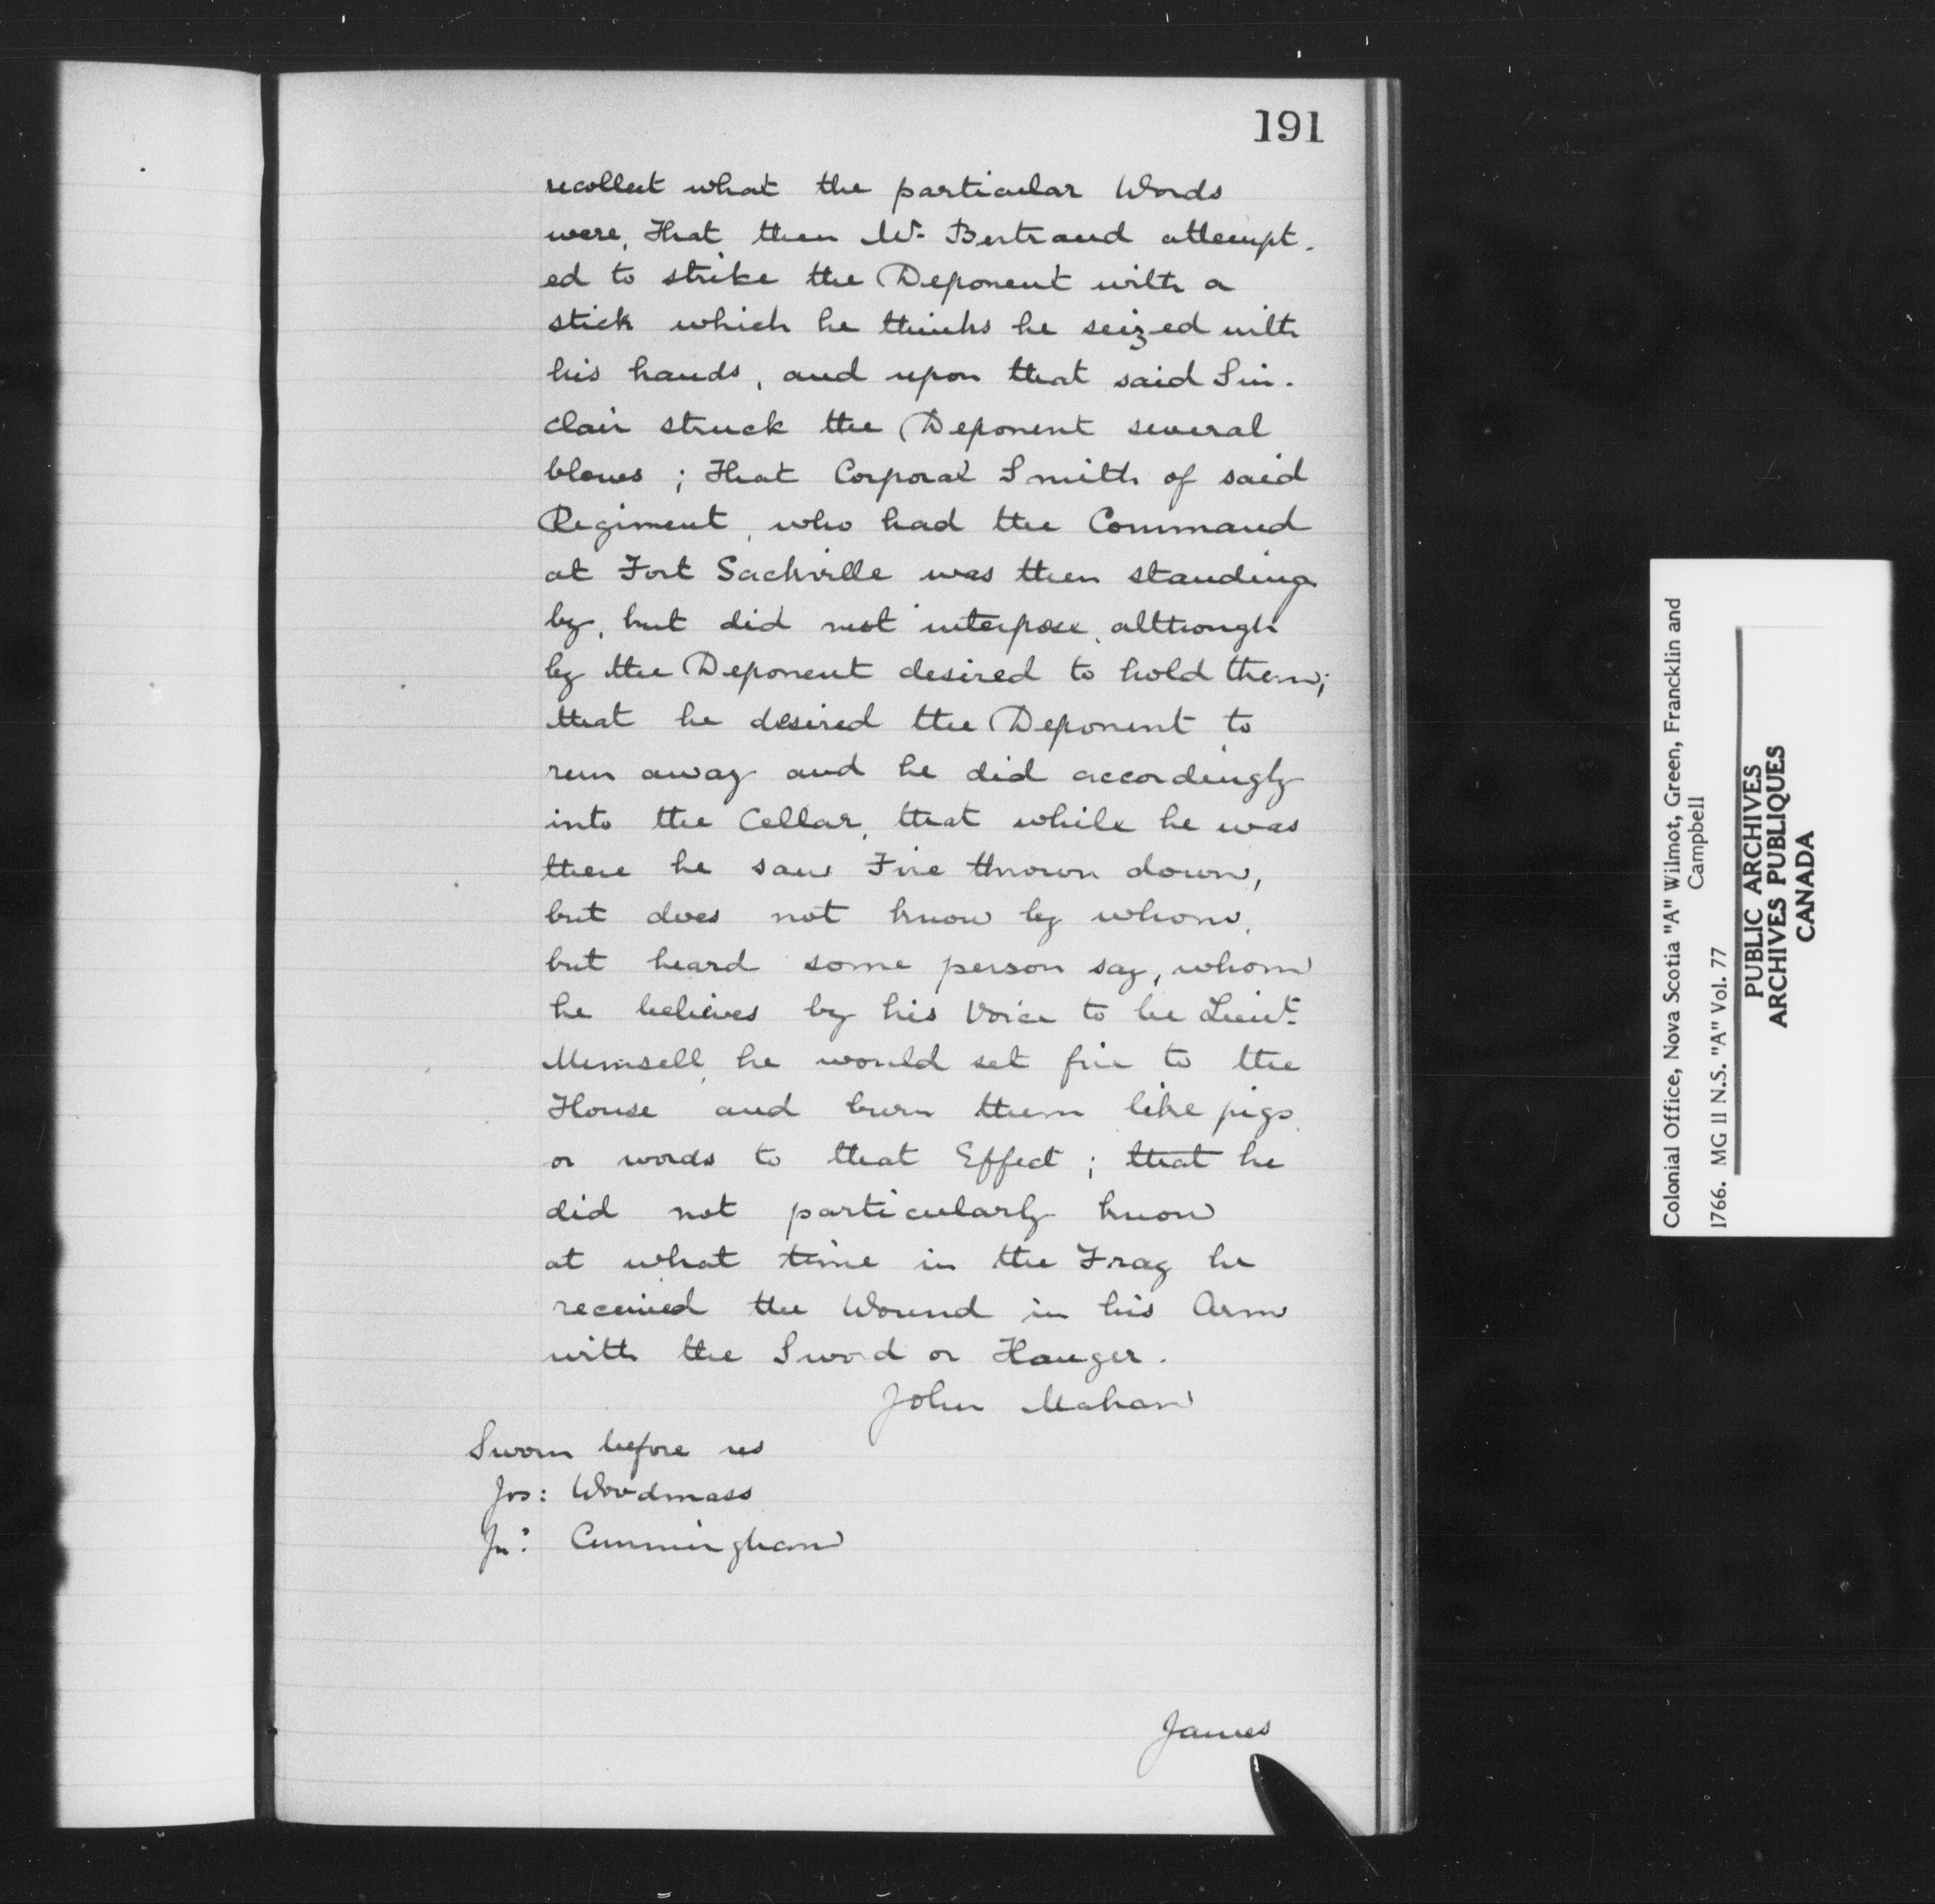 191
recollect what the particular Words
were, That then Mr. Bertrand attempt-
ed to strike the Deponent with a
stick which he thinks he seized with
his hands, and upon that said Sin-
clair struck the Deponent several
blows; That Corporal Smith of said
Regiment, who had the Command
at Fort Sackville was then standing
by, but did not interpose, although
by the Deponent desired to hold them;
that he desired the Deponent to
run away and he did accordingly
into the Cellar, that while he was
there he saw Fire thrown down,
but does not know by whom,
but heard some person say, whom
he believes by his Voice to be Lieut.
he would set fire to the
House and burn them like pigs
or words to that Effect; that he
did not particularly know
at what time in the Fray he
received the Wound in his Arm
with the Sword or Hanger.
John Mahan
Sworn before us
Jos: Woodmass
Jno: Cunningham
James
Colonial Office, Nova Scotia "A" Wilmot, Green, Francklin and
Campbell
1766. MG 11 N.S. "A" Vol. 77
PUBLIC ARCHIVES
ARCHIVES PUBLIQUES
CANADA